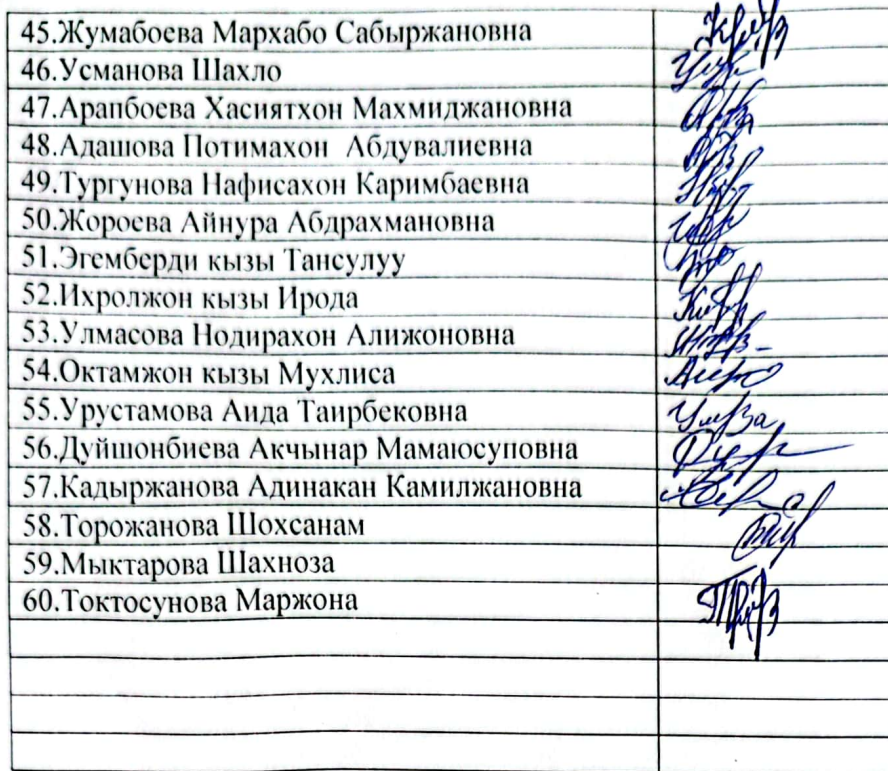 45.Жумабоева Мархабо Сабыржановна
46.Усманова Шахло
47.Арапбоева Хасиятхон Махмиджановна
48.Адашова Потимахон Абдувалиевна
49.Тургунова Нафисахон Каримбаевна
50.Жороева Айнура Абдрахмановна
51.Эгемберди кызы Тансулуу
52.Ихролжон кызы Ирода
53.Улмасова Нодирахон Алижоновна
54.Октамжон кызы Мухлиса
55.Урустамова Аида Таирбековна
56.Дуйшонбиева Акчынар Мамаюсуповна
57.Кадыржанова Адинакан Камилжановна
58.Торожанова Шохсанам
59.Мыктарова Шахноза
60.Токтосунова Маржона